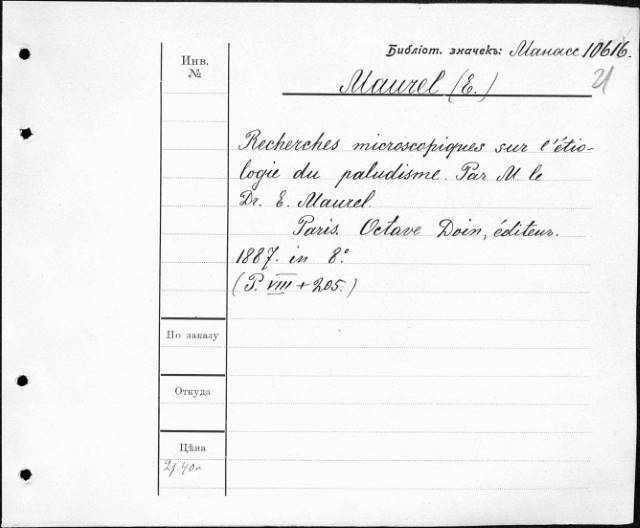 Библіот. значекъ: Манасс 10616.
21
Инв.
№
Maurel (E.)
Recherches microscopiques sur l'étio-
logie du paludisme. Par M. le
Dr. E. Maurel.
Paris. Octave Doin, éditeur.
1887. in 8.°
(P. VIII + 205.)
По заказу
Откуда
Цѣна
2р. 40к